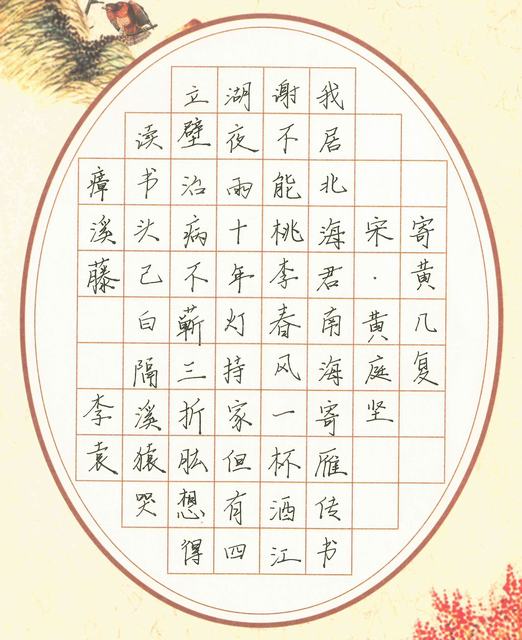 寄黄几复
宋·黄庭坚
我居北海君南海寄雁传书
谢不能桃李春风一杯酒江
湖夜雨十年灯持家但有四
立壁治病不蕲三折肱想得
读书头已白隔溪猿哭
瘴溪藤 李袁